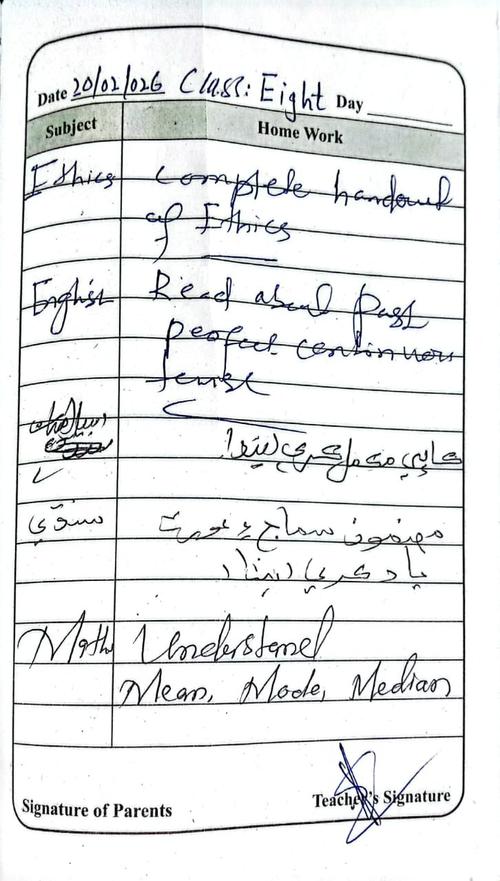 Date 20/02/026 Class: Eight Day
Subject Home Work
Ethics Complete handout
of Ethics
English Read about Past
perfect continuous
tense
ڪاپي مڪمل ڪري
سنڌي مضمون سماج ۾ عورت
ياد ڪري
Maths Understand
Mean, Mode, Median
Signature of Parents Teacher's Signature